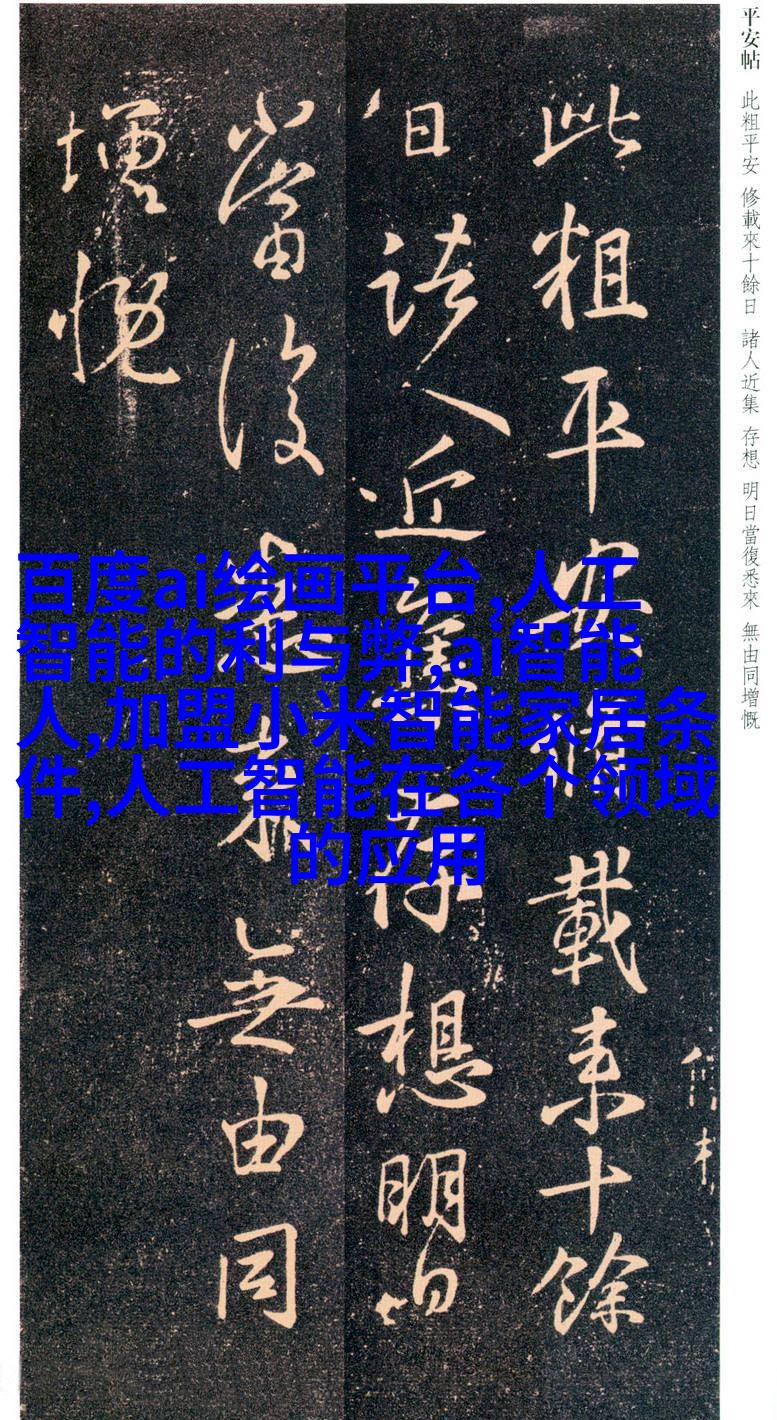 平安帖 此粗平安 修載來十餘日 諸人近集 存想 明日當復悉來 無由同增慨
此粗平安脩載来十餘
日諸人近集存想明日
當復悉来無由同
增慨
百度ai绘画平台,人工
智能的利与弊,ai智能
人,加盟小米智能家居条
件,人工智能在各个领域
的应用